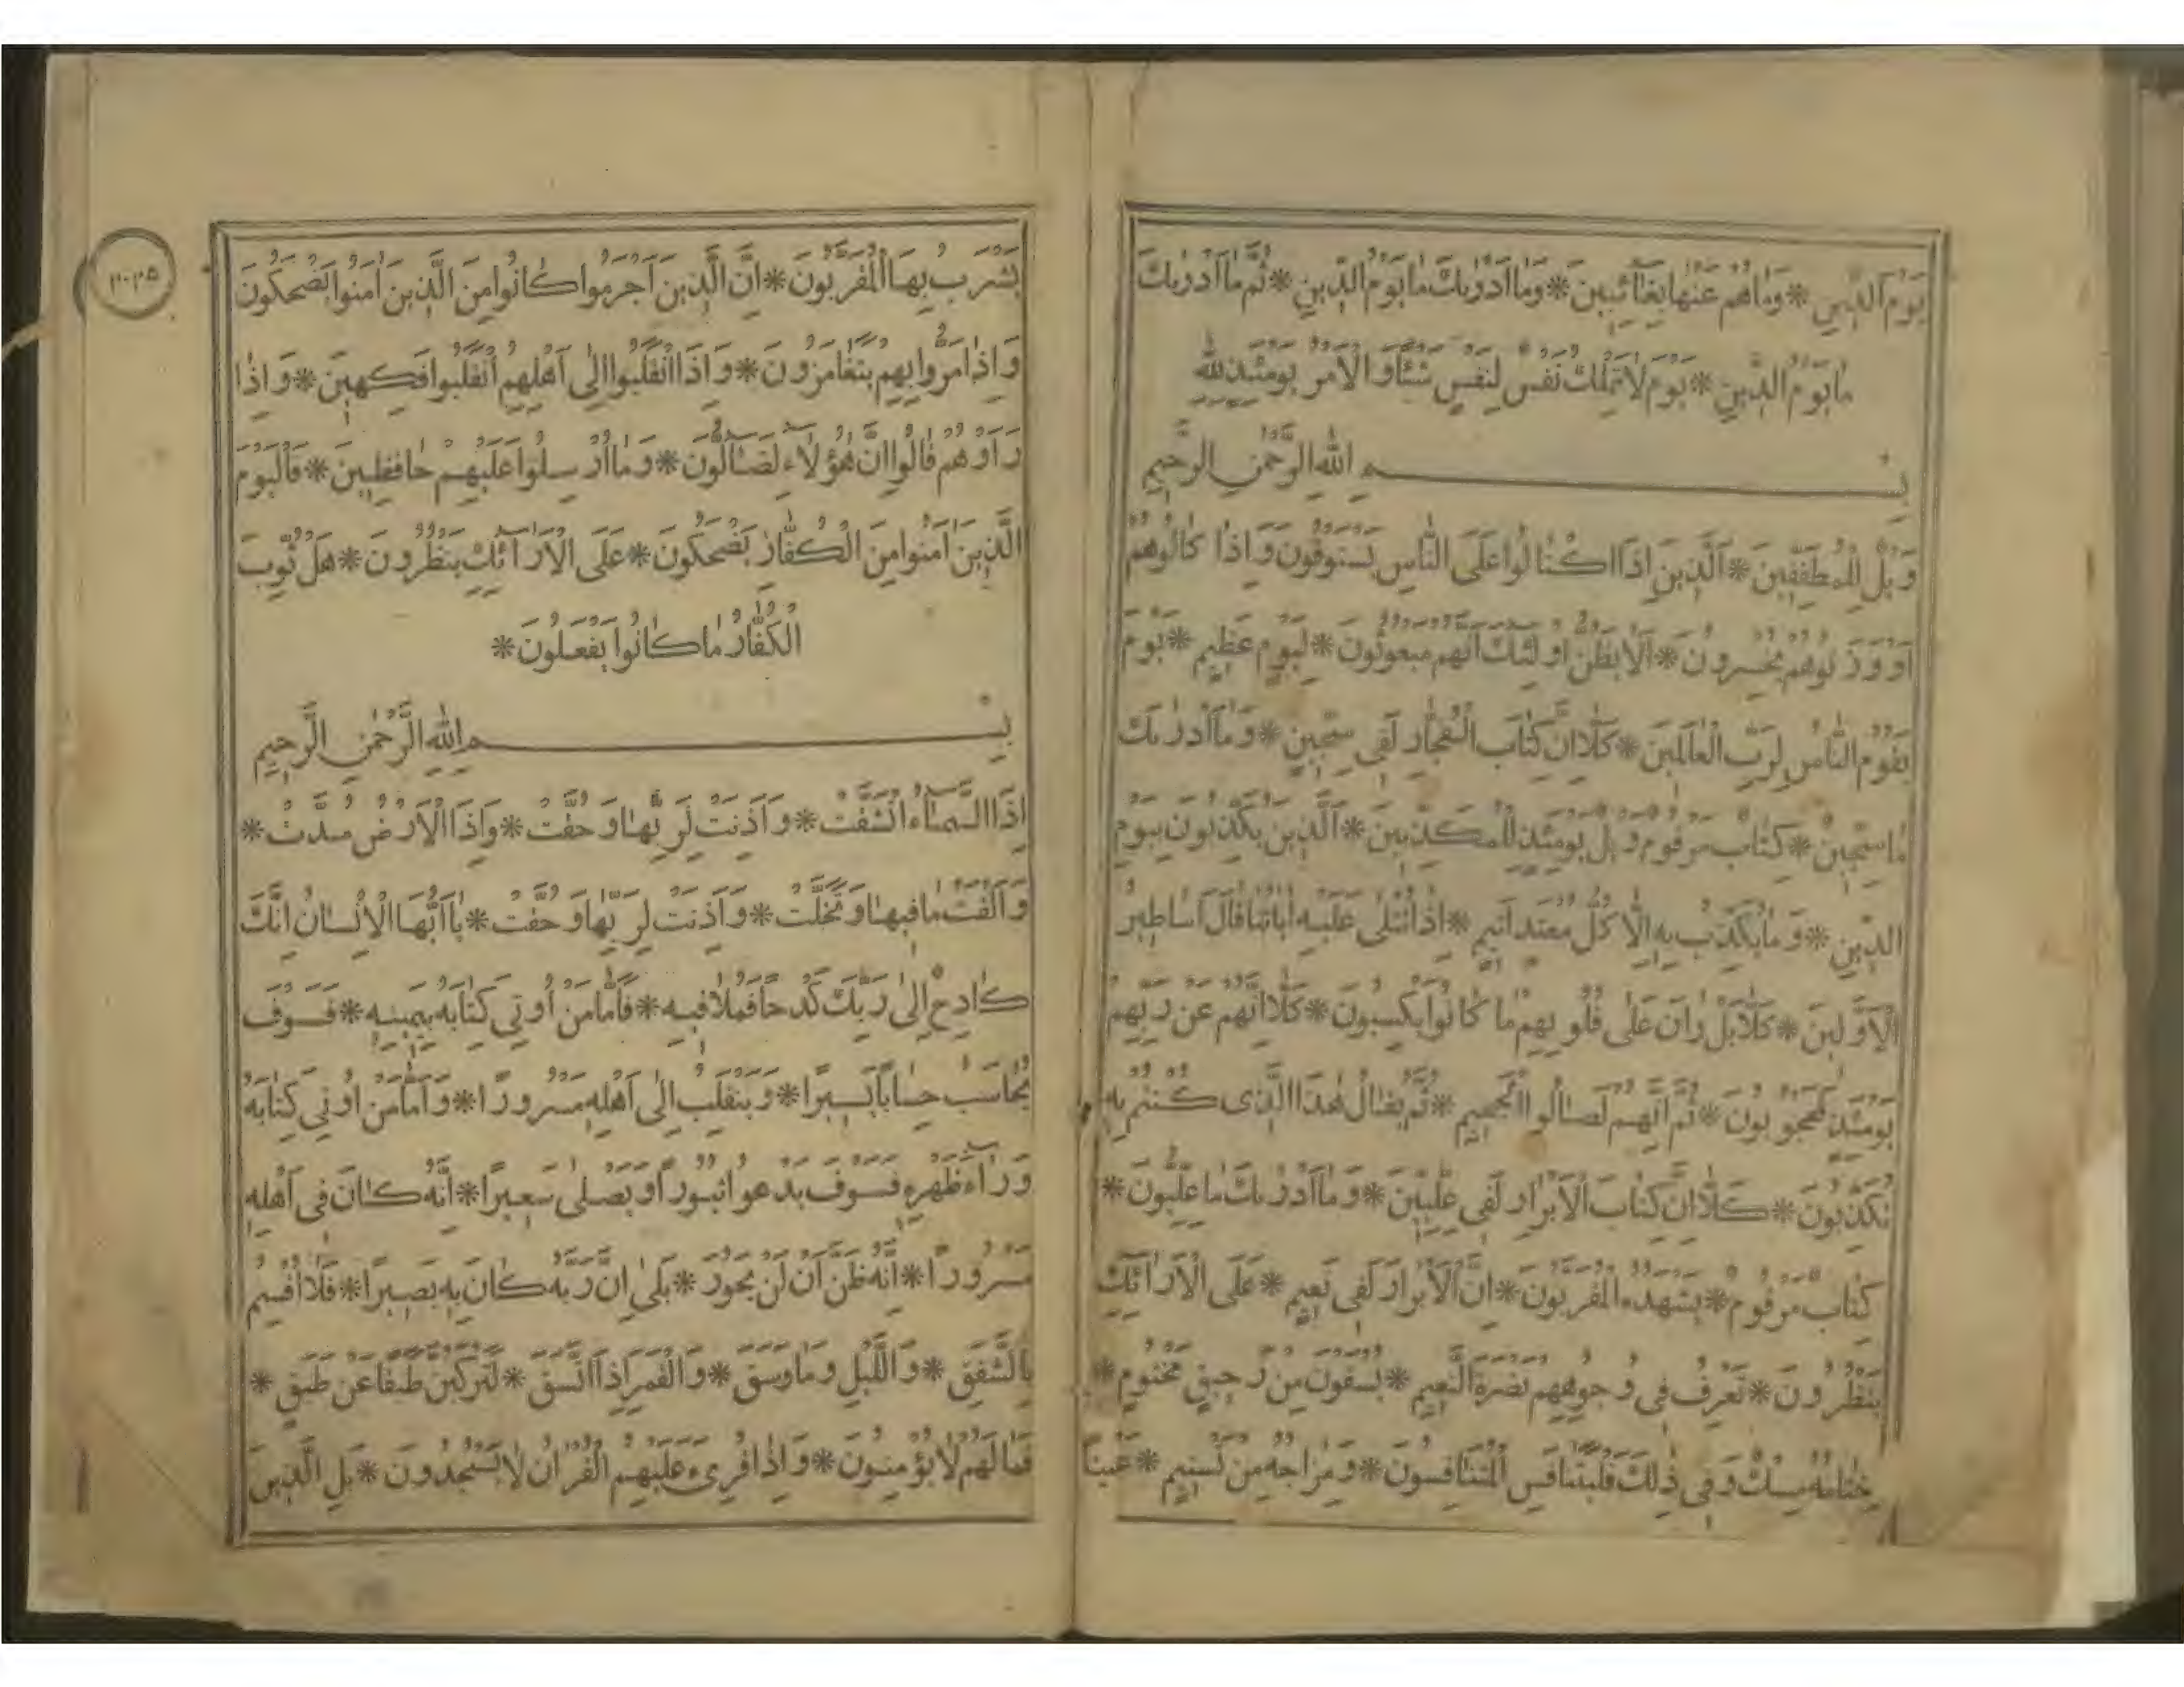 يَوْمَ الدِّينِ * وَمَا هُمْ عَنْهَا بِغَائِبِينَ * وَمَا اَدْرٰیكَ مَا يَوْمُ الدِّينِ * ثُمَّ مَا اَدْرٰیكَ
مَا يَوْمُ الدِّينِ * يَوْمَ لَا تَمْلِكُ نَفْسٌ لِنَفْسٍ شَيْئًا وَالْاَمْرُ يَوْمَئِذٍ لِلّٰهِ
بِسْمِ اللّٰهِ الرَّحْمٰنِ الرَّحِيمِ
وَيْلٌ لِلْمُطَفِّفِينَ * اَلَّذِينَ اِذَا اكْتَالُوا عَلَى النَّاسِ يَسْتَوْفُونَ وَاِذَا كَالُوهُمْ
اَوْ وَزَنُوهُمْ يُخْسِرُونَ * اَلَا يَظُنُّ اُولٰئِكَ اَنَّهُمْ مَبْعُوثُونَ * لِيَوْمٍ عَظِيمٍ * يَوْمَ
يَقُومُ النَّاسُ لِرَبِّ الْعَالَمِينَ * كَلَّا اِنَّ كِتَابَ الْفُجَّارِ لَفِي سِجِّينٍ * وَمَا اَدْرٰیكَ
مَا سِجِّينٌ * كِتَابٌ مَرْقُومٌ وَيْلٌ يَوْمَئِذٍ لِلْمُكَذِّبِينَ * اَلَّذِينَ يُكَذِّبُونَ بِيَوْمِ
الدِّينِ * وَمَا يُكَذِّبُ بِهِ اِلَّا كُلُّ مُعْتَدٍ اَثِيمٍ * اِذَا تُتْلٰى عَلَيْهِ اٰيَاتُنَا قَالَ اَسَاطِيرُ
الْاَوَّلِينَ * كَلَّا بَلْ رَانَ عَلٰى قُلُوبِهِمْ مَا كَانُوا يَكْسِبُونَ * كَلَّا اِنَّهُمْ عَنْ رَبِّهِمْ
يَوْمَئِذٍ لَمَحْجُوبُونَ * ثُمَّ اِنَّهُمْ لَصَالُوا الْجَحِيمِ * ثُمَّ يُقَالُ هٰذَا الَّذِى كُنْتُمْ بِهِ
تُكَذِّبُونَ * كَلَّا اِنَّ كِتَابَ الْاَبْرَارِ لَفِي عِلِّيِّينَ * وَمَا اَدْرٰیكَ مَا عِلِّيُّونَ *
كِتَابٌ مَرْقُومٌ * يَشْهَدُهُ الْمُقَرَّبُونَ * اِنَّ الْاَبْرَارَ لَفِي نَعِيمٍ * عَلَى الْاَرَائِكِ
يَنْظُرُونَ * تَعْرِفُ فِي وُجُوهِهِمْ نَضْرَةَ النَّعِيمِ * يُسْقَوْنَ مِنْ رَحِيقٍ مَخْتُومٍ *
خِتَامُهُ مِسْكٌ وَفِي ذٰلِكَ فَلْيَتَنَافَسِ الْمُتَنَافِسُونَ * وَمِزَاجُهُ مِنْ تَسْنِيمٍ * عَيْنًا
يَشْرَبُ بِهَا الْمُقَرَّبُونَ * اِنَّ الَّذِينَ اَجْرَمُوا كَانُوا مِنَ الَّذِينَ اٰمَنُوا يَضْحَكُونَ
وَاِذَا مَرُّوا بِهِمْ يَتَغَامَزُونَ * وَاِذَا انْقَلَبُوا اِلٰى اَهْلِهِمُ انْقَلَبُوا فَكِهِينَ * وَاِذَا
رَاَوْهُمْ قَالُوا اِنَّ هٰؤُلَاءِ لَضَالُّونَ * وَمَا اُرْسِلُوا عَلَيْهِمْ حَافِظِينَ * فَالْيَوْمَ
الَّذِينَ اٰمَنُوا مِنَ الْكُفَّارِ يَضْحَكُونَ * عَلَى الْاَرَائِكِ يَنْظُرُونَ * هَلْ ثُوِّبَ
الْكُفَّارُ مَا كَانُوا يَفْعَلُونَ *
بِسْمِ اللّٰهِ الرَّحْمٰنِ الرَّحِيمِ
اِذَا السَّمَاءُ انْشَقَّتْ * وَاَذِنَتْ لِرَبِّهَا وَحُقَّتْ * وَاِذَا الْاَرْضُ مُدَّتْ *
وَاَلْقَتْ مَا فِيهَا وَتَخَلَّتْ * وَاَذِنَتْ لِرَبِّهَا وَحُقَّتْ * يَا اَيُّهَا الْاِنْسَانُ اِنَّكَ
كَادِحٌ اِلٰى رَبِّكَ كَدْحًا فَمُلَاقِيهِ * فَاَمَّا مَنْ اُوتِيَ كِتَابَهُ بِيَمِينِهِ * فَسَوْفَ
يُحَاسَبُ حِسَابًا يَسِيرًا * وَيَنْقَلِبُ اِلٰى اَهْلِهِ مَسْرُورًا * وَاَمَّا مَنْ اُوتِيَ كِتَابَهُ
وَرَاءَ ظَهْرِهِ فَسَوْفَ يَدْعُوا ثُبُورًا وَيَصْلٰى سَعِيرًا * اِنَّهُ كَانَ فِي اَهْلِهِ
مَسْرُورًا * اِنَّهُ ظَنَّ اَنْ لَنْ يَحُورَ * بَلٰى اِنَّ رَبَّهُ كَانَ بِهِ بَصِيرًا * فَلَا اُقْسِمُ
بِالشَّفَقِ * وَاللَّيْلِ وَمَا وَسَقَ * وَالْقَمَرِ اِذَا اتَّسَقَ * لَتَرْكَبُنَّ طَبَقًا عَنْ طَبَقٍ *
فَمَا لَهُمْ لَا يُؤْمِنُونَ * وَاِذَا قُرِىءَ عَلَيْهِمُ الْقُرْاٰنُ لَا يَسْجُدُونَ * بَلِ الَّذِينَ